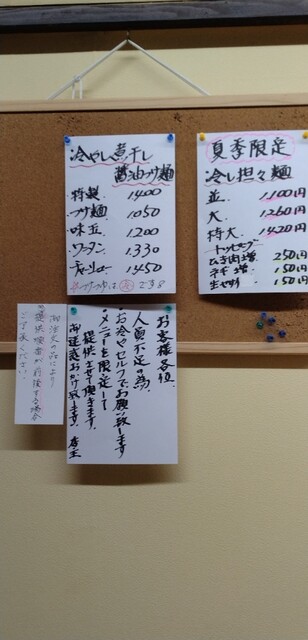 冷やし煮干し
醤油つけ麺
特製 1400
つけ麺 1050
味玉 1200
ワンタン 1330
チャーシュー 1450
夏季限定
冷し担々麺
並 1100円
大 1260円
特大 1420円
トッピング
ひき肉増 250円
ネギ増 150円
生七味 150円
お客様各位
人員不足の為、
お冷やセルフでお願い致します
メニューを限定して
提供させて頂きます。
御迷惑おかけ致します。 店主
御注文の品により
提供順番が前後する場合
ご了承ください